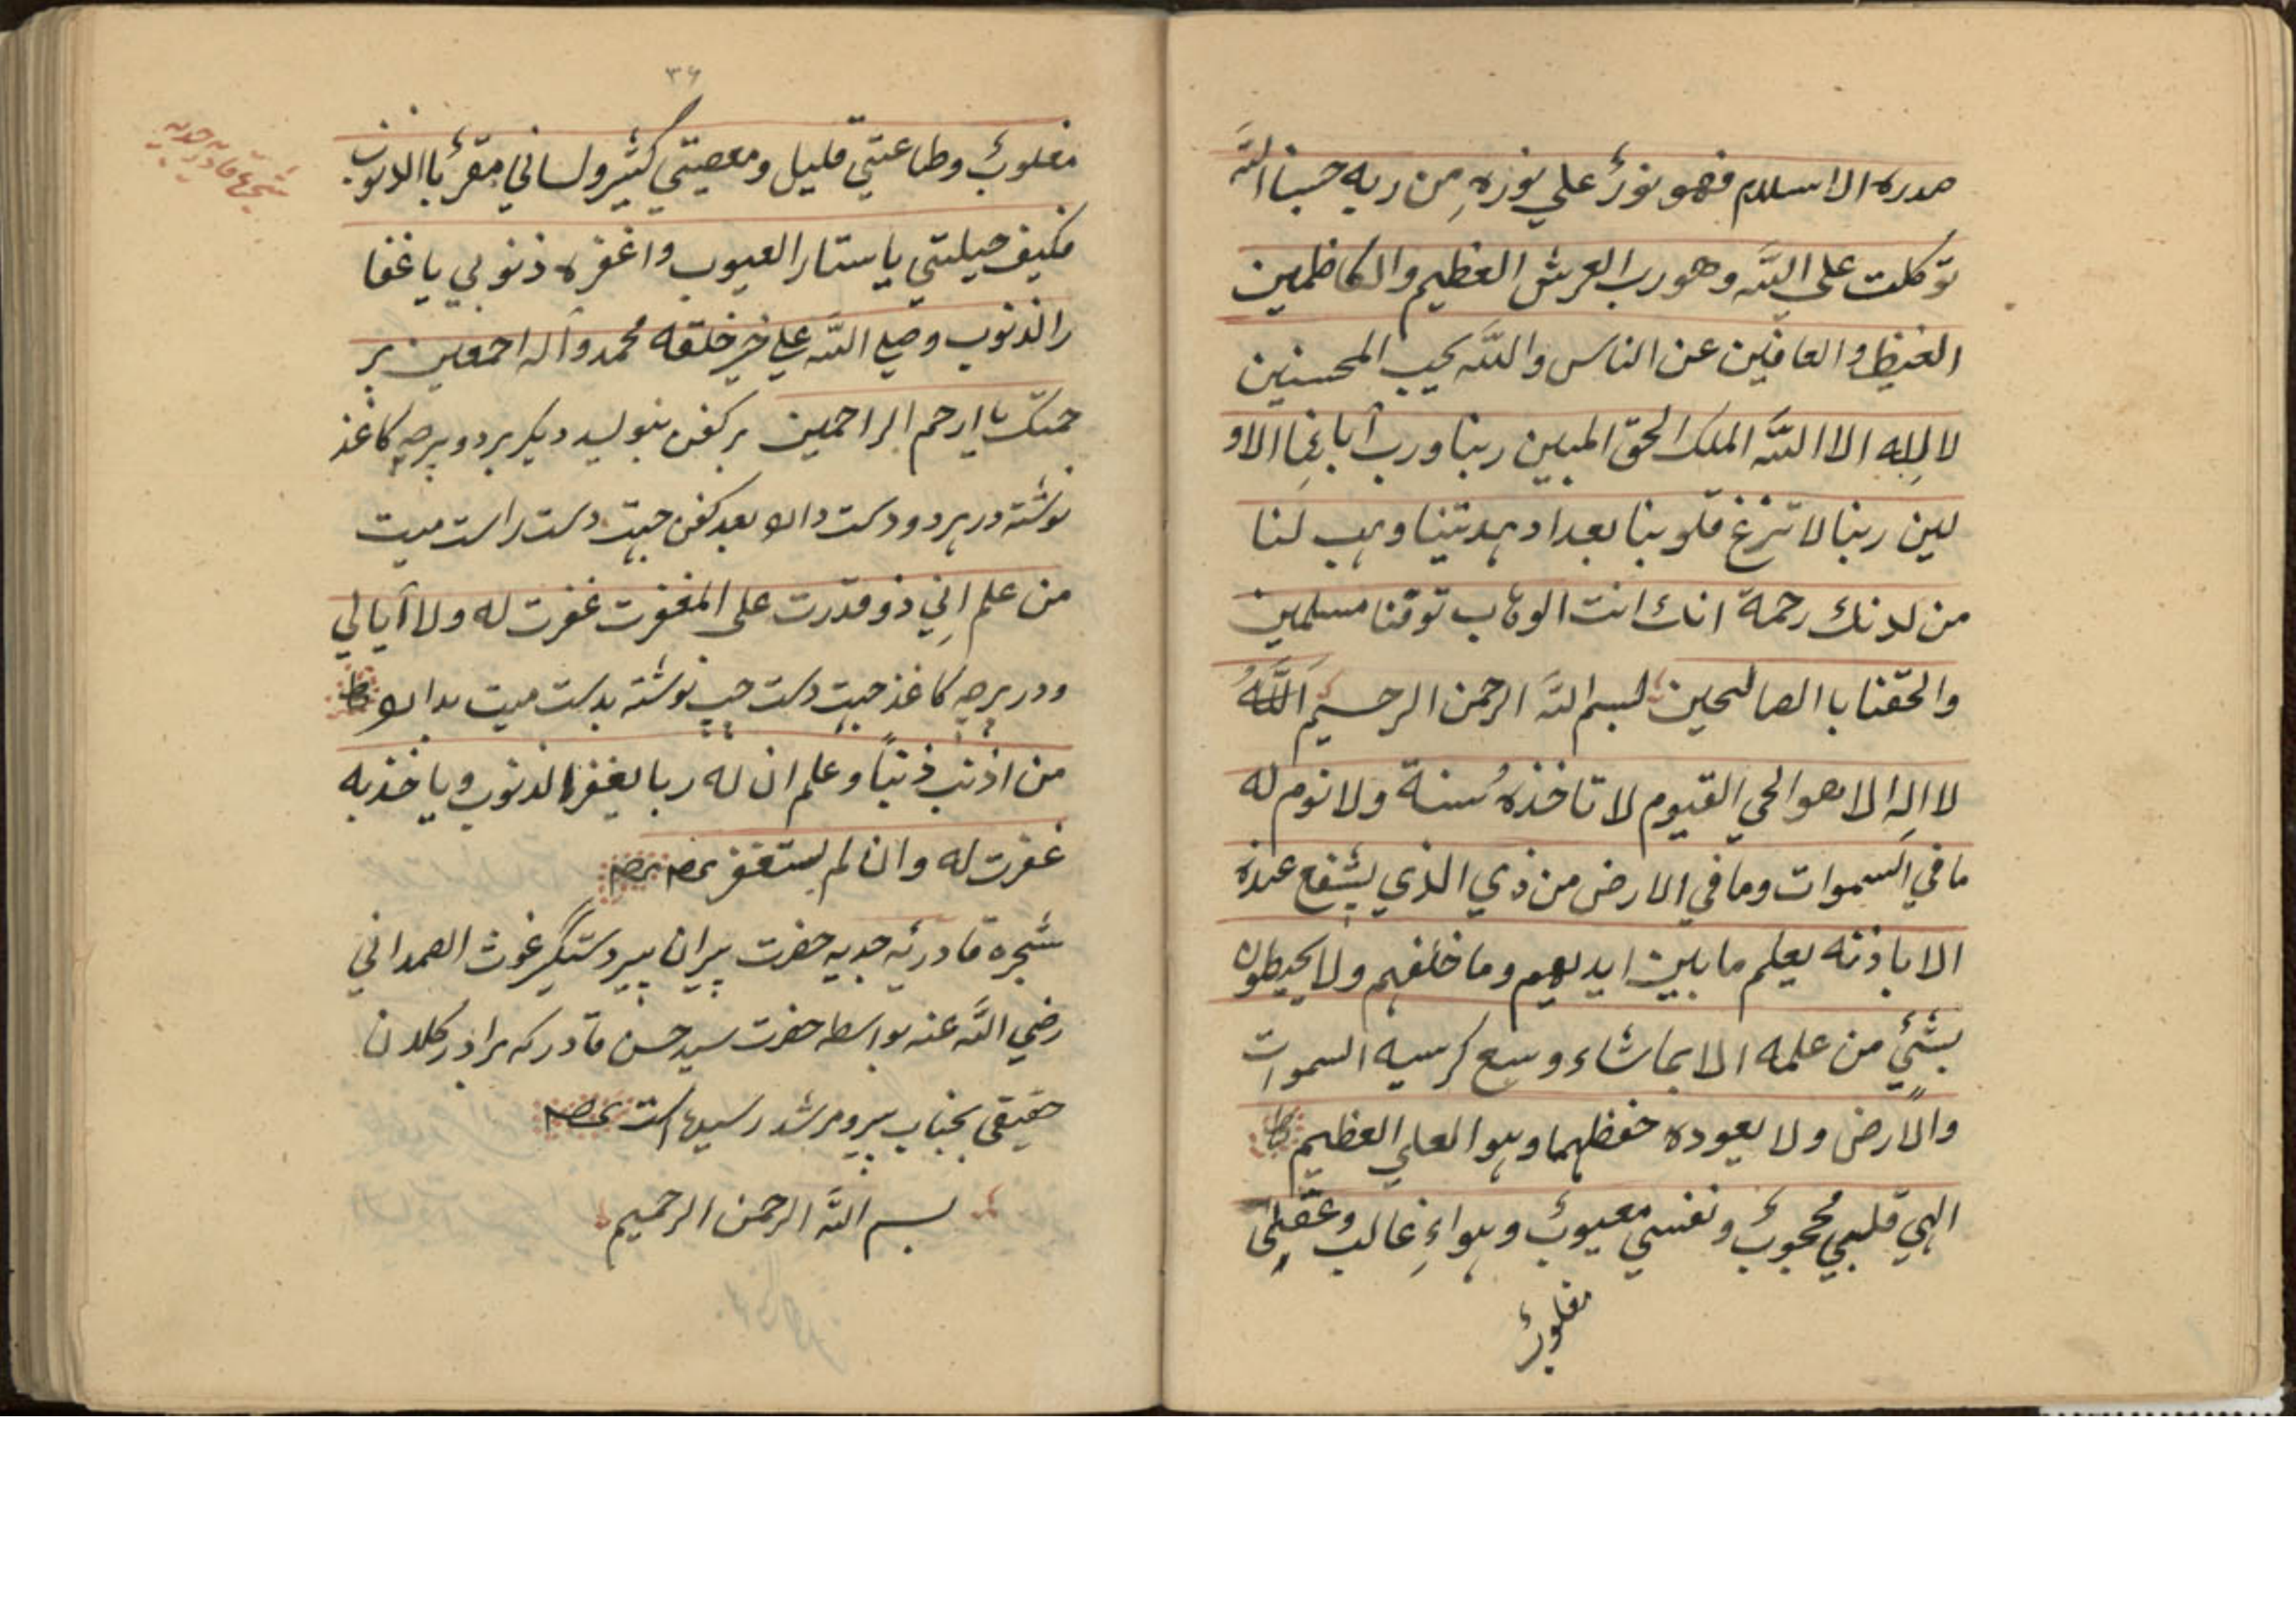 صدره الاسلام فهو نورٌ علي نوره من ربه حسبنا الله
توكلت علي الله وهو رب العرش العظيم والكاظمين
الغيظ والعافين عن الناس والله يحب المحسنين
لا إله الا الله الملك الحق المبين ربنا ورب آبائنا الاو
لين ربنا لا تزغ قلوبنا بعد اد هديتنا وهب لنا
من لدنك رحمة انك انت الوهاب توفنا مسلمين
والحقنا با الصالحين بسم الله الرحمن الرحيم اَللَّهُ
لا اله الا هو الحي القيوم لا تاخذه سنة ولا نوم له
ما في السموات وما في الارض من ذي الذي يشفع عنده
الا باذنه يعلم ما بين ايديهم وما خلفهم ولا يحيطون
بشئي من علمه الا بما شاء وسع كرسيه السموات
والارض ولا يعوده حفظهما وهو العلي العظيم
الهي قلبي محجوبٌ ونفسي معيوبٌ وهواءِ غالب وعقلي
مغلوبٌ
۳۶
شجرۀ قادریه جدیه
مغلوبٌ وطاعتي قليل ومعصيتي كثير ولساني مقرٌ با الذنوب
فكيف حيلتي يا ستار العيوب واغفره ذنوبي يا غفا
را لذنوب وصلي الله علي خير خلقه محمد وآله اجمعين بر
حمتك يا ارحم الراحمين بر کفن بنویسد دیکر بر دو پرچه کاغذ
نوشته در هر دو دست داد بعد کفن جهت دست راست میت
من علم اني ذو قدرت علي المغفرت غفرت له ولا آبالي
ودر پرچه کاغذ جهت دست چپ نوشته بدست میت بداد
من اذنب ذنبًا وعلم ان له ربا يغفر الذنوب وياخذ به
غفرت له وان لم يستغفر
شجره قادریه جدیه حضرت پیران پیر دستگیر غوث الصمدانی
رضي الله عنه بواسطه حضرت سید حسن قادر که برادر کلان
حقیقی بجناب پیر و مرشد رسیده است
بسم الله الرحمن الرحيم